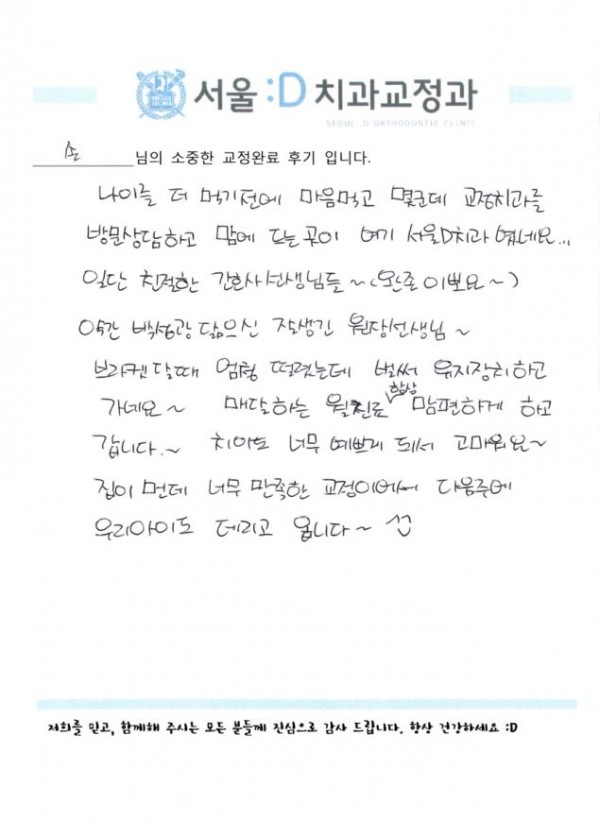 서울 :D 치과교정과
SEOUL :D ORTHODONTIC CLINIC
손 님의 소중한 교정완료 후기 입니다.
나이를 더 먹기전에 마음먹고 몇군데 교정치과를
방문상담하고 맘에 드는곳이 여기 서울D치과 였네요...
일단 친절한 간호사선생님들~(완죤이뽀요~)
약간 백성광 닮으신 잘생긴 원장선생님~
브라켓달때 엄청 떨렸는데 벌써 유지장치하고
가네요~ 매달하는 월진료 항상 맘편하게 하고
갑니다.~ 치아도 너무 예쁘게 되서 고마워요~
집이 먼데 너무 만족한 교정이여서 다음주에
우리아이도 데리고 옵니다~ ^^
저희를 믿고, 함께해 주시는 모든 분들께 진심으로 감사 드립니다. 항상 건강하세요 :D